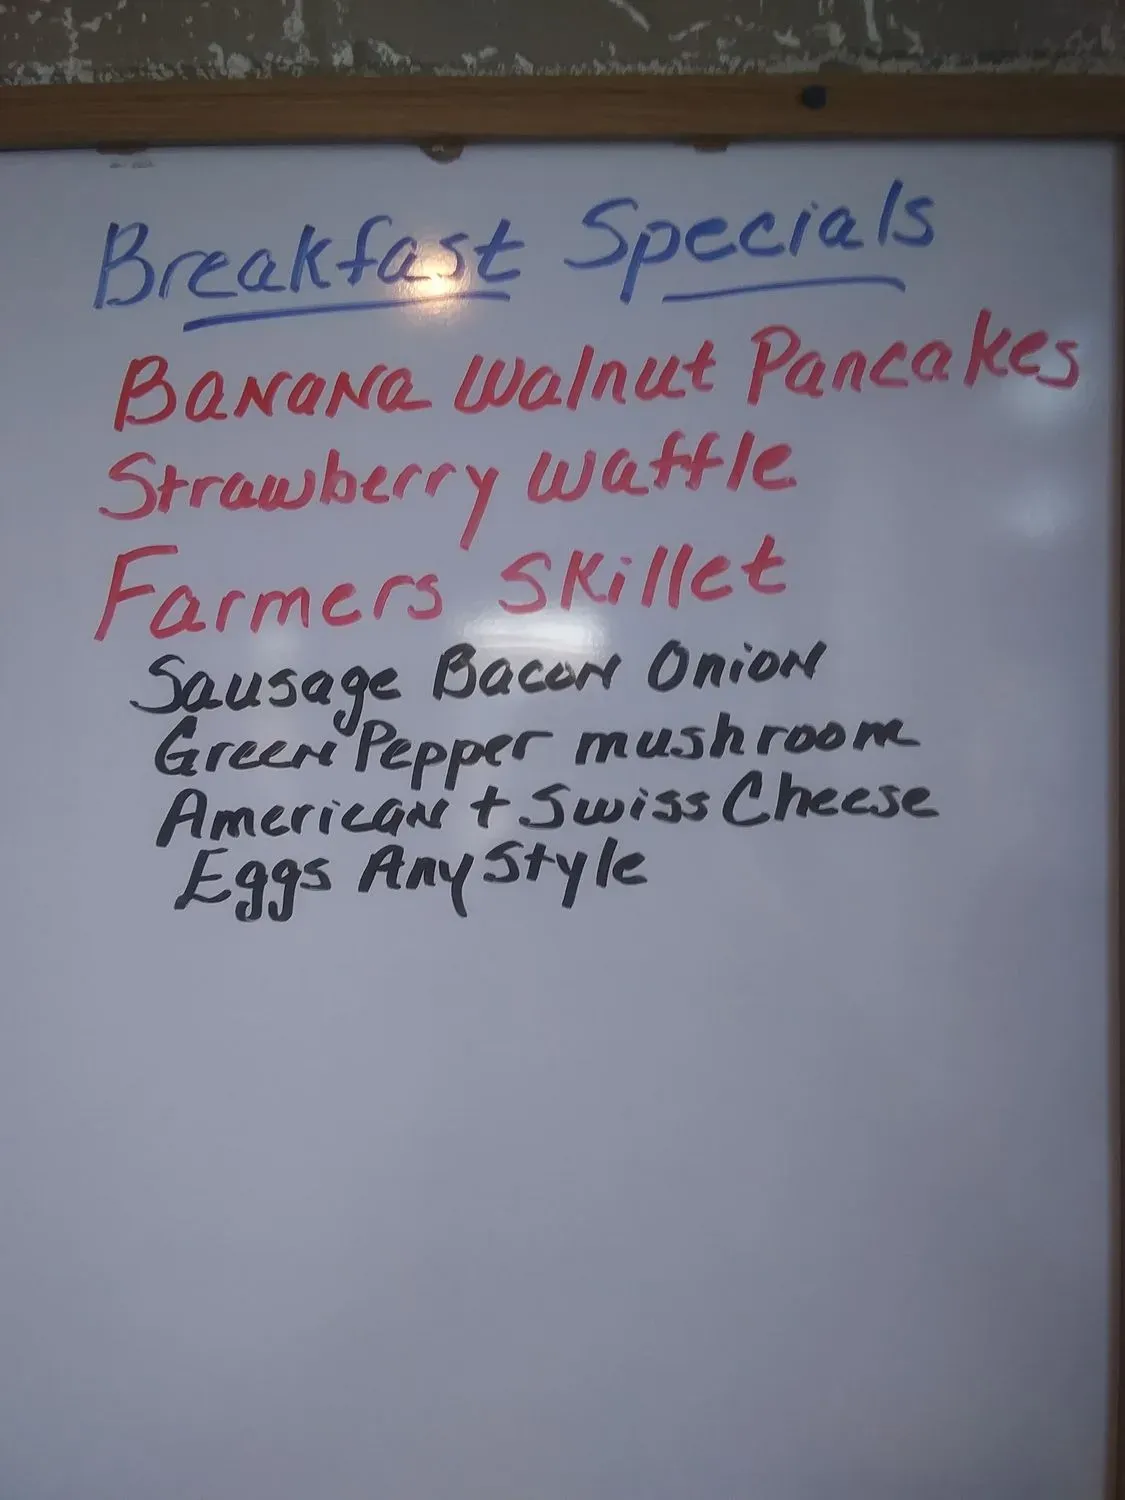 Breakfast Specials
Banana Walnut Pancakes
Strawberry Waffle
Farmers Skillet
Sausage Bacon Onion
Green Pepper mushroom
American + Swiss Cheese
Eggs Any Style